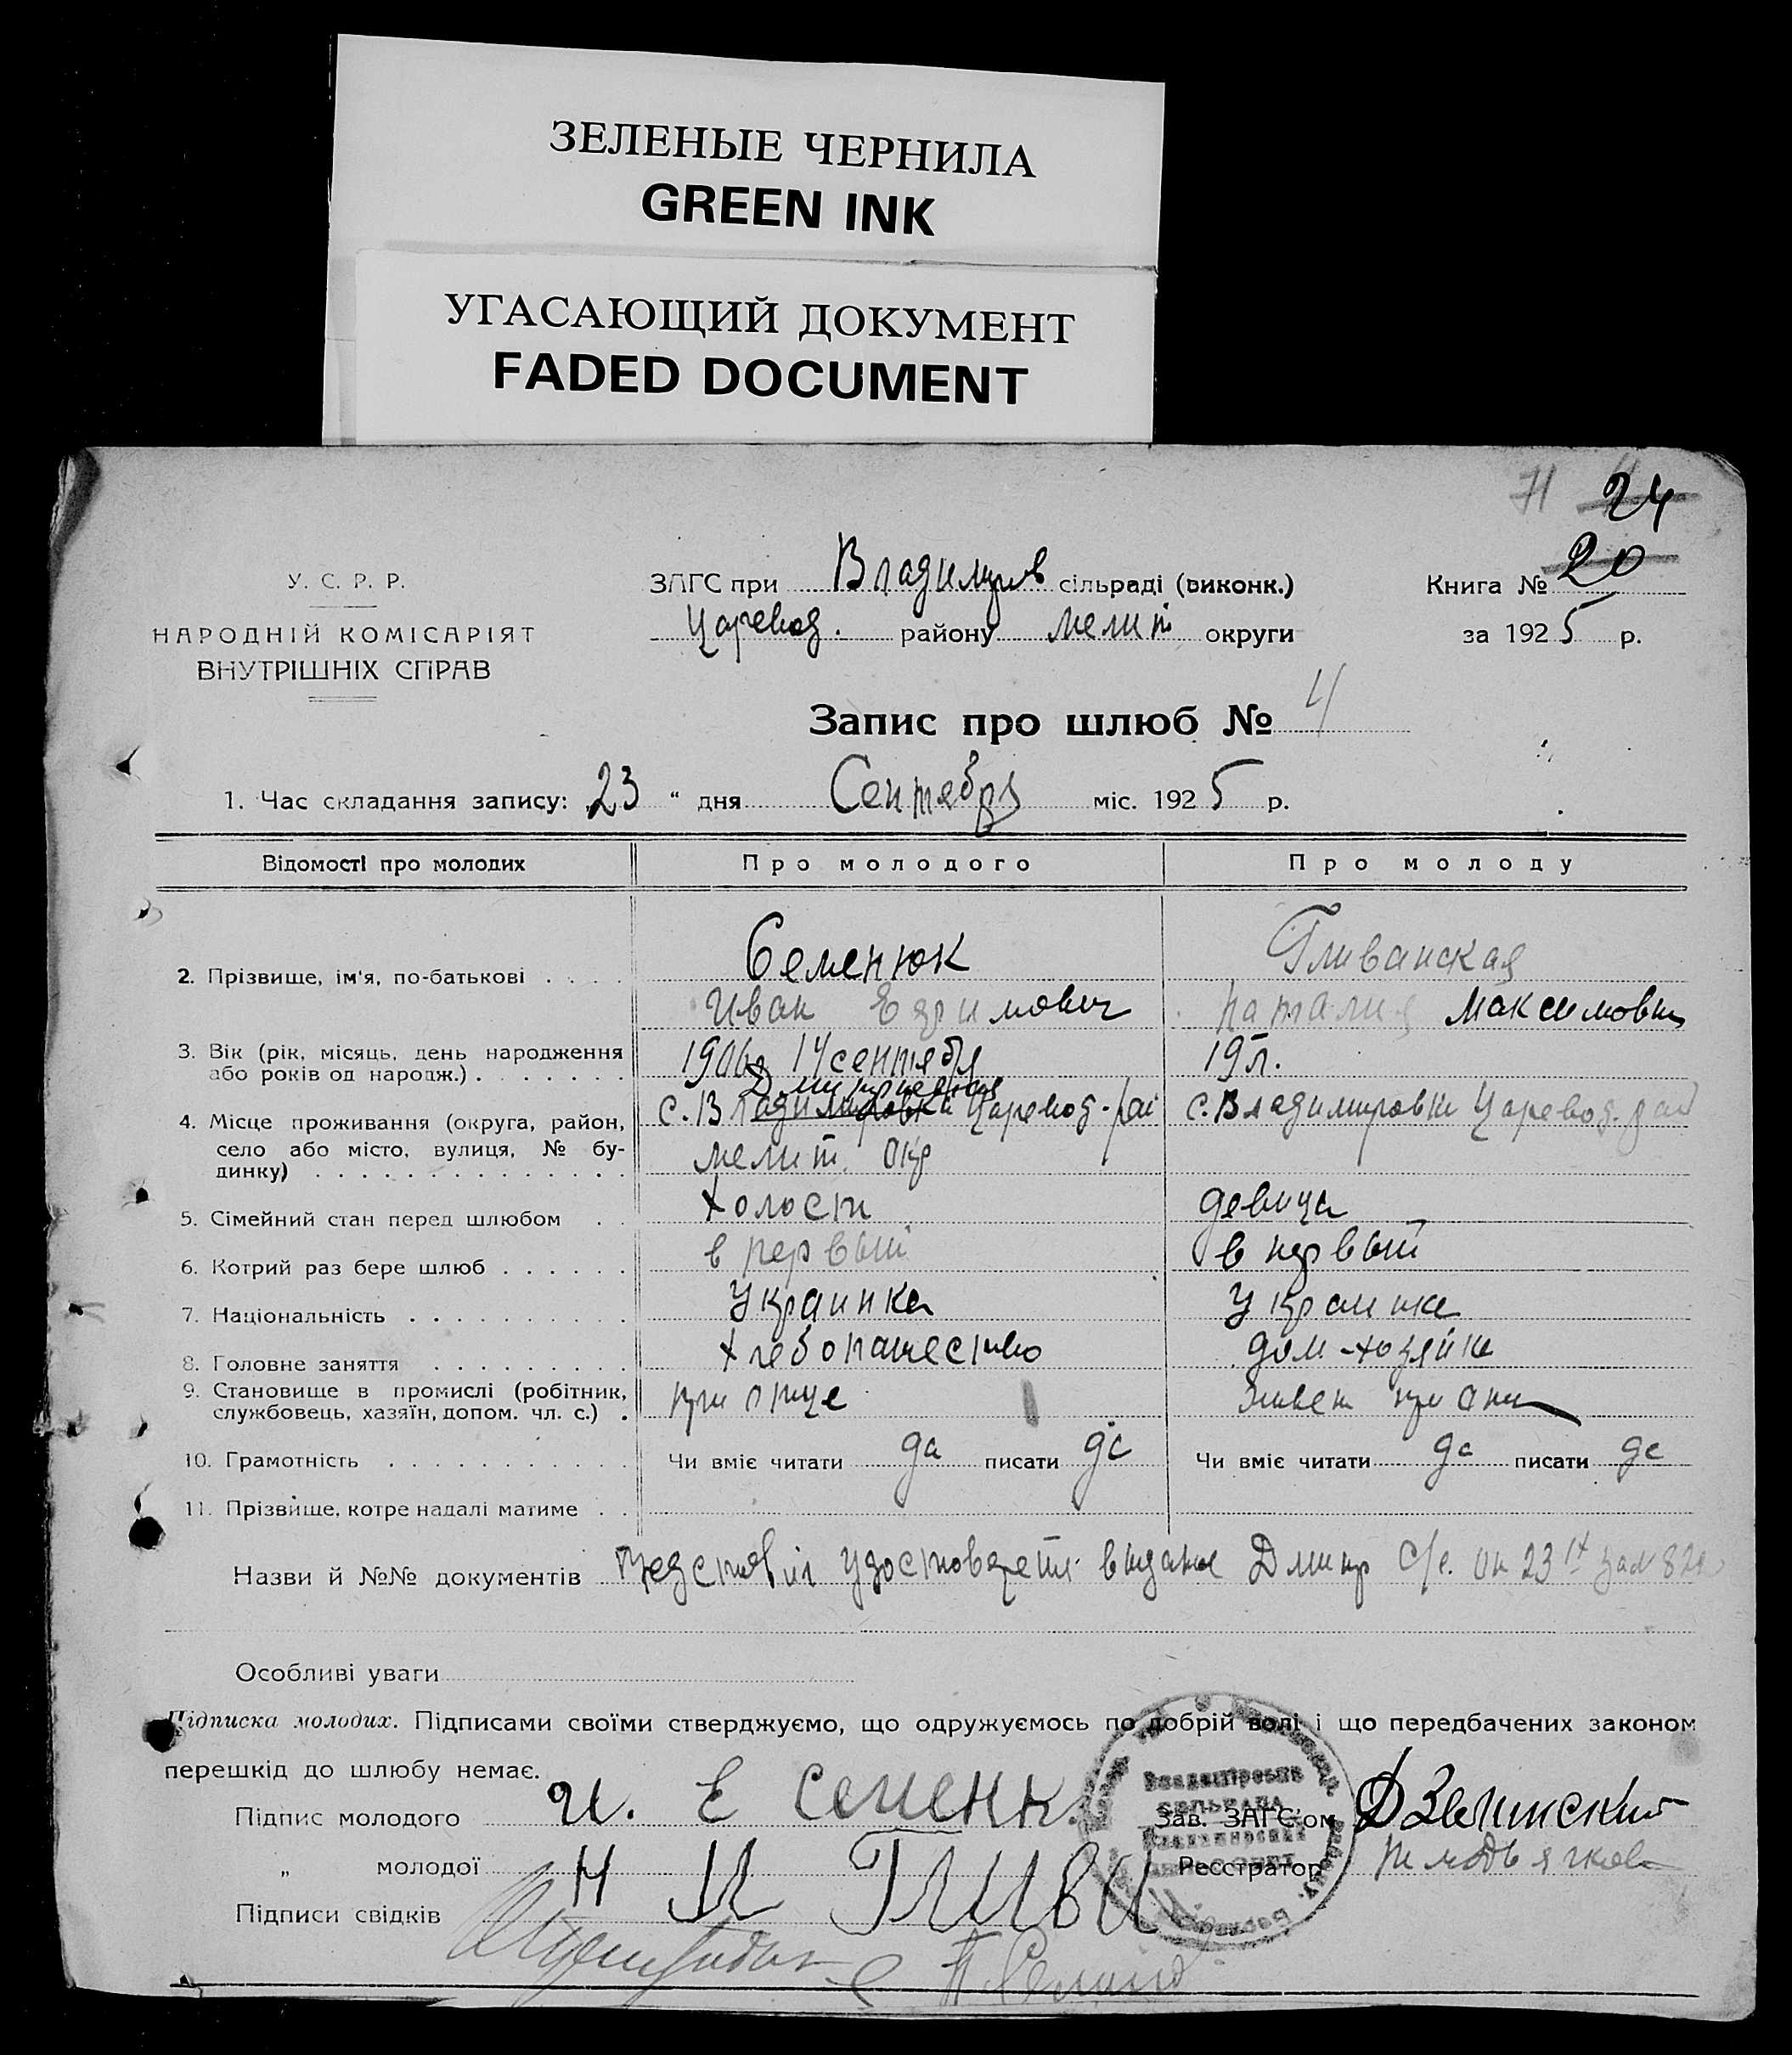 ЗЕЛЕНЫЕ ЧЕРНИЛА
GREEN INK
УГАСАЮЩИЙ ДОКУМЕНТ
FADED DOCUMENT
71 24
У. С. Р. Р.
НАРОДНІЙ КОМІСАРІЯТ
ВНУТРІШНІХ СПРАВ
ЗАГС при Владимиров сільраді (виконк.)
Царевод. району мелит округи
Книга № 20
за 1925 р.
Запис про шлюб № 4
1. Час складання запису: „23“ дня Сентября міс. 1925 р.
Відомості про молодих Про молодого Про молоду
2. Прізвище, ім'я, по-батькові Семенюк Гливанская
Иван Ефимович наталия Максимовна
3. Вік (рік, місяць, день народження або років од народж.) 1906г 14 сентября 19 л.
4. Місце проживання (округа, район, село або місто, вулиця, № будинку) с. Владимировки Царевод-рай с. Владимировки Царевод. рай
мелит. окр
5. Сімейний стан перед шлюбом холост девица
6. Котрий раз бере шлюб в первый в первый
7. Національність Украинка Украинка
8. Головне заняття хлебопашество дом-хозяйка
9. Становище в промислі (робітник, службовець, хазяїн, допом. чл. с.) при отце живет при отц
10. Грамотність Чи вміє читати да писати да Чи вміє читати да писати да
11. Прізвище, котре надалі матиме
Назви й №№ документів выдано Дмитр С/с. от 23
Особливі уваги
Підписка молодих. Підписами своїми стверджуємо, що одружуємось по добрій волі і що передбачених законом
перешкід до шлюбу немає.
Підпис молодого И. Е Семенк Зав. ЗАГС'ом ДЗелинский
„ молодої Н М Гливи Реєстратор
Підписи свідків